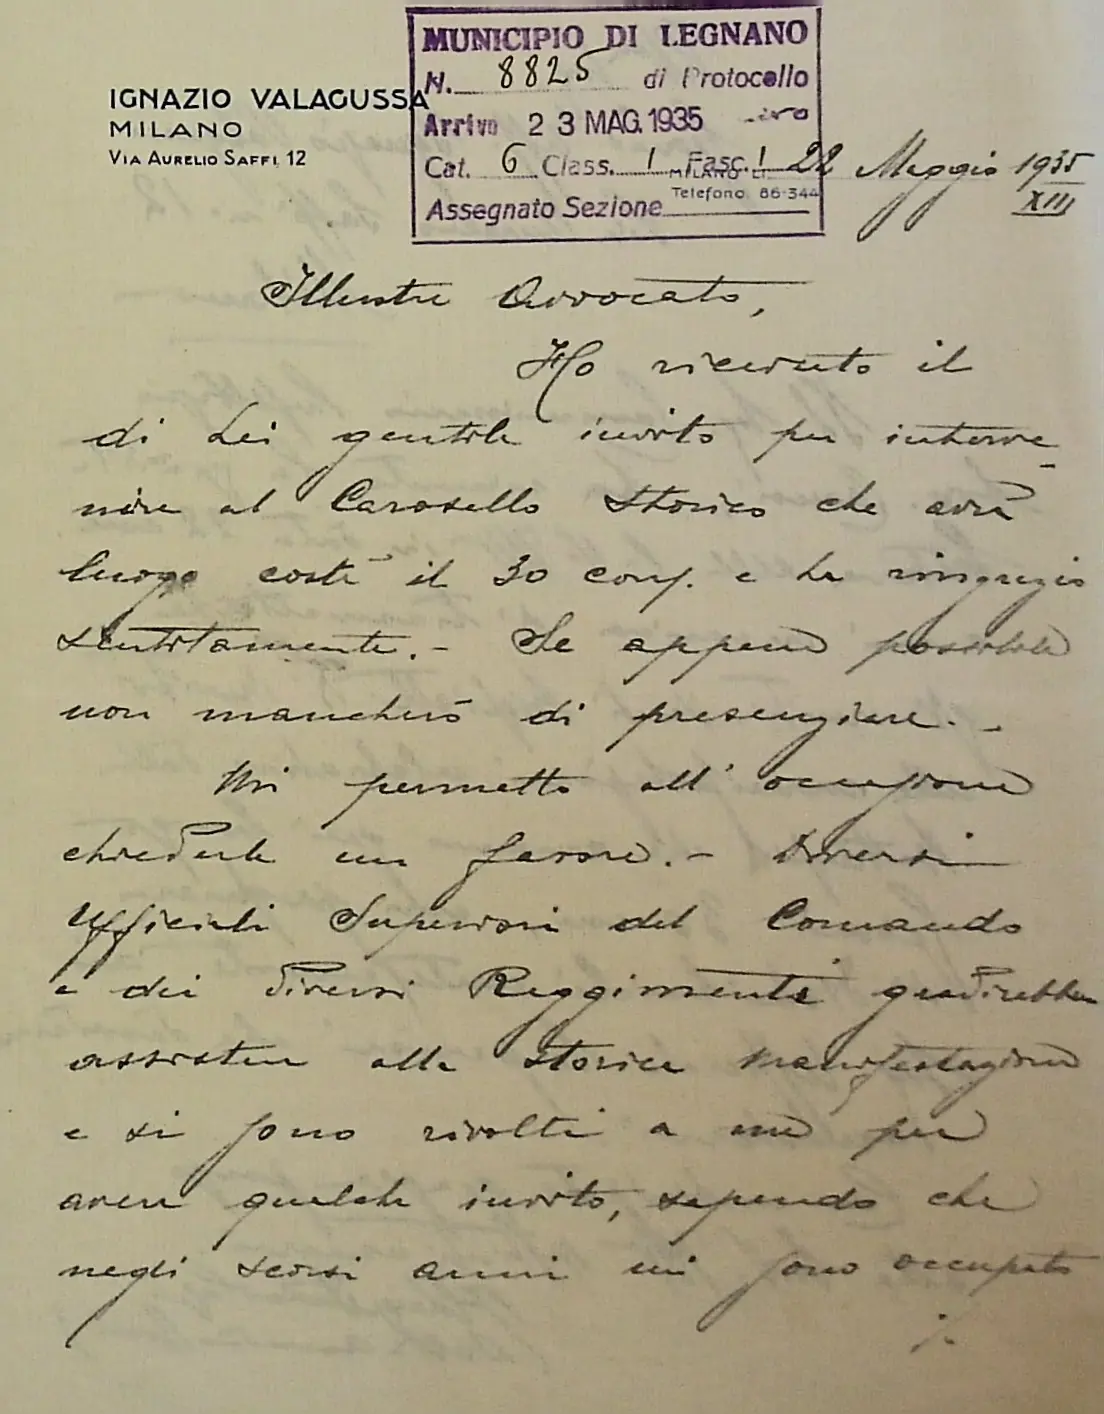 MUNICIPIO DI LEGNANO
N. 8825 di Protocollo
Arrivo 23 MAG. 1935
Cat. 6 Class. 1 Fasc. 1
Assegnato Sezione
IGNAZIO VALAGUSSA
MILANO
VIA AURELIO SAFFI, 12
MILANO LI
Telefono 86-344
22 Maggio 1935
XIII
Illustre Avvocato,
Ho ricevuto il
di Lei gentile invito per interve-
nire al Carosello Storico che avrà
luogo costì il 30 corr. e La ringrazio
sentitamente. - Se appena possibile
non mancherò di presenziare. -
Mi permetto all'occasione
chiederLe un favore. - Diversi
Ufficiali Superiori del Comando
e dei diversi Reggimenti gradirebbero
assistere alla storica manifestazione
e si sono rivolti a me per
avere qualche invito, sapendo che
negli scorsi anni mi sono occupato
./.